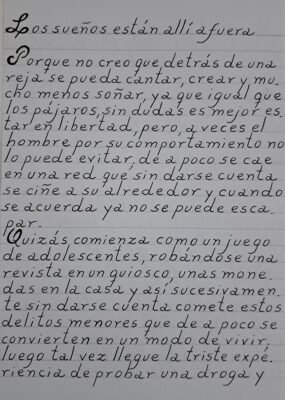 Los sueños están allí afuera
Porque no creo que detrás de una
reja se pueda cantar, crear y mu_
cho menos soñar, ya que igual que
los pájaros, sin dudas es mejor es_
tar en libertad, pero, a veces el
hombre por su comportamiento no
lo puede evitar, de a poco se cae
en una red que sin darse cuenta
se ciñe a su alrededor y cuando
se acuerda ya no se puede esca_
par.
Quizás, comienza como un juego
de adolescentes, robándose una
revista en un quiosco, unas mone_
das en la casa y así sucesivamen_
te sin darse cuenta comete estos
delitos menores que de a poco se
convierten en un modo de vivir,
luego tal vez llegue la triste expe_
riencia de probar una droga y